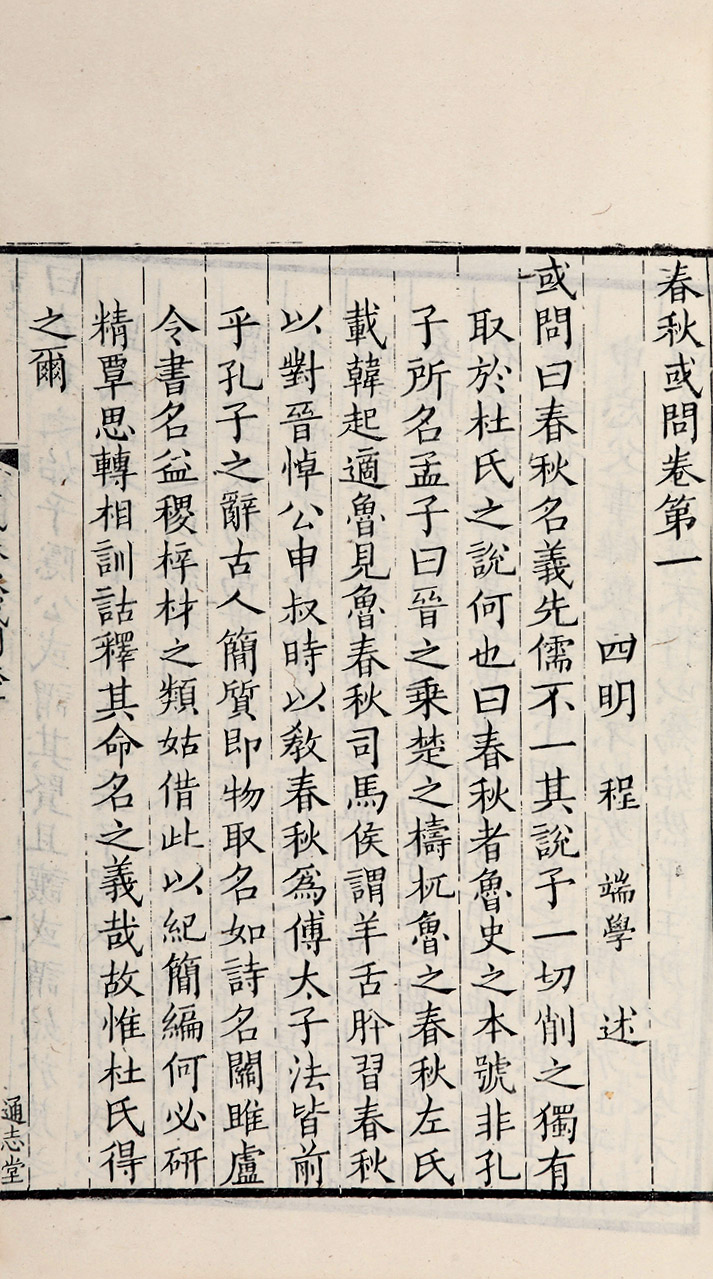 春秋或問卷第一
四明 程 端學 述
或問曰春秋名義先儒不一其說予一切削之獨有
取於杜氏之說何也曰春秋者魯史之本號非孔
子所名孟子曰晉之乗楚之檮杌魯之春秋左氏
載韓起適魯見魯春秋司馬侯謂羊舌肸習春秋
以對晉悼公申叔時以敎春秋爲傅太子法皆前
乎孔子之辭古人簡質即物取名如詩名關雎盧
令書名益稷梓材之類姑借此以紀簡編何必研
精覃思轉相訓詁釋其命名之義哉故惟杜氏得
之爾
一
通志堂